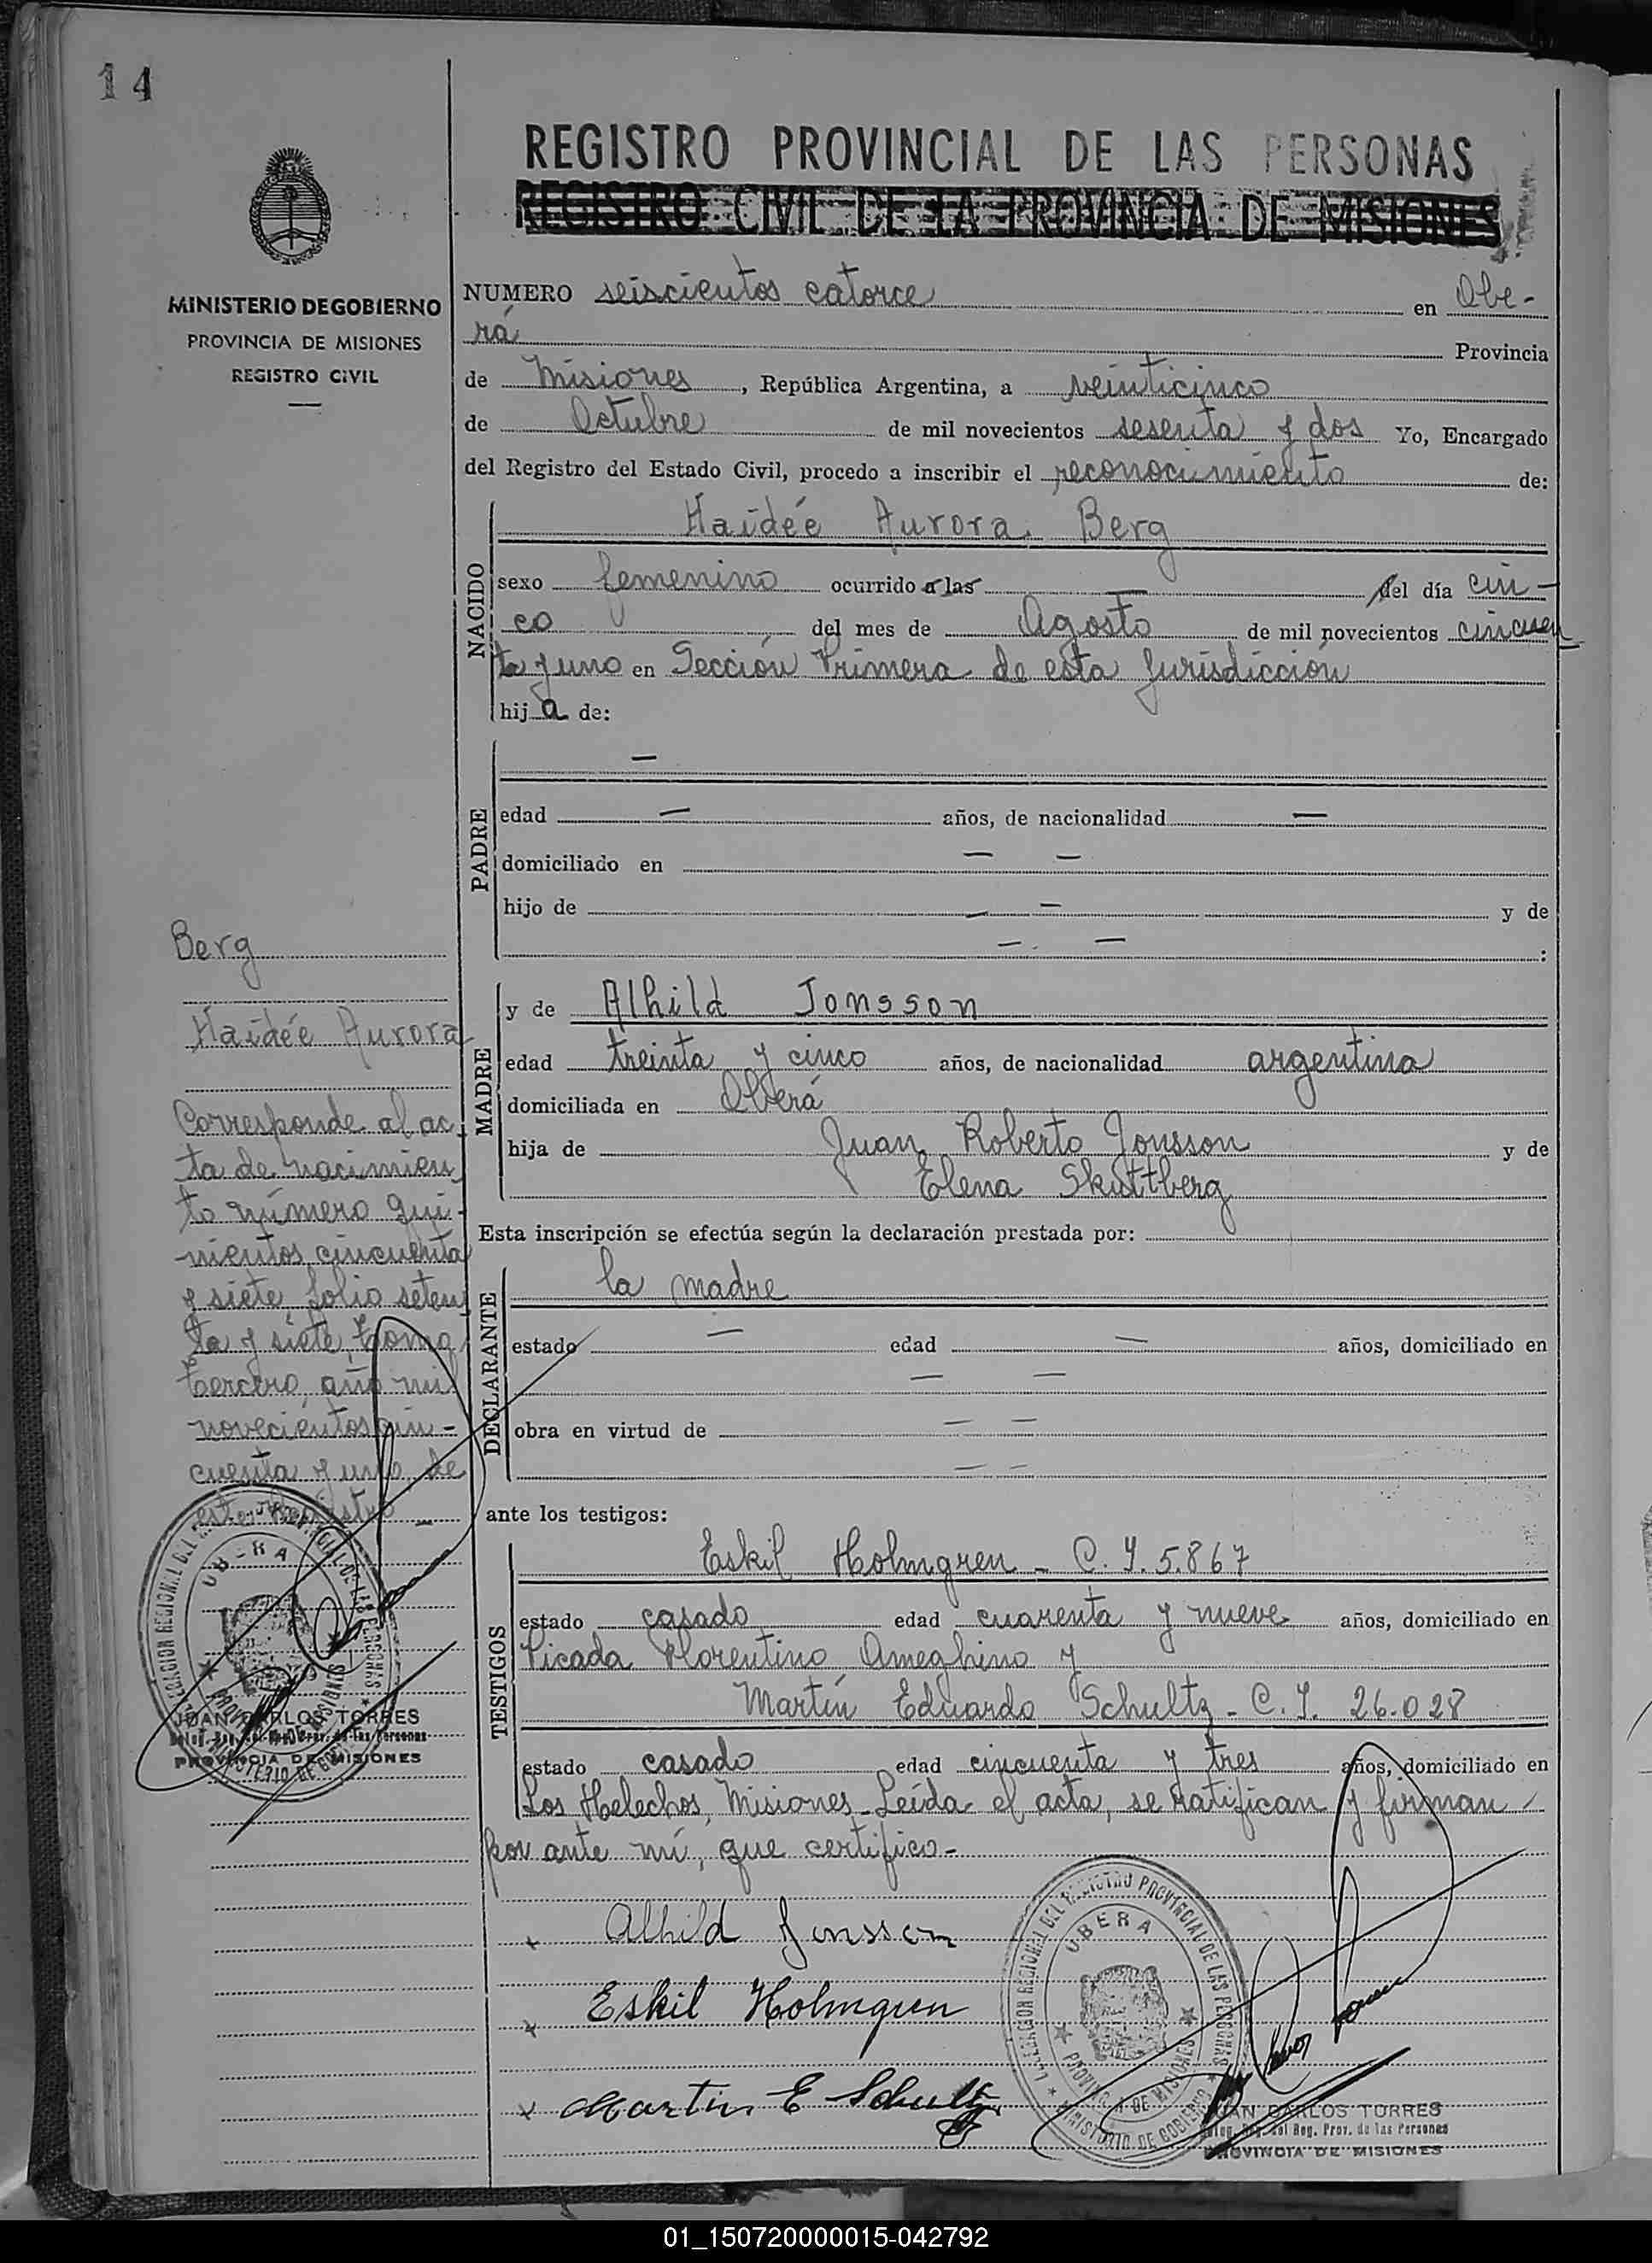 14
REGISTRO PROVINCIAL DE LAS PERSONAS
REGISTRO CIVIL DE LA PROVINCIA DE MISIONES
MINISTERIO DE GOBIERNO
PROVINCIA DE MISIONES
REGISTRO CIVIL
NUMERO seiscientos catorce en Obe-
rá Provincia
de Misiones, República Argentina, a veinticinco
de Octubre de mil novecientos sesenta y dos Yo, Encargado
del Registro del Estado Civil, procedo a inscribir el reconocimiento de:
NACIDO
Haidée Aurora Berg
sexo femenino ocurrido a las — del día cin-
co del mes de Agosto de mil novecientos cincuen
ta y uno en Sección Primera de esta Jurisdicción
hija de:
PADRE
—
edad — años, de nacionalidad —
domiciliado en — —
hijo de — — y de
— — :
MADRE
y de Alhild Jonsson
edad treinta y cinco años, de nacionalidad argentina
domiciliada en Oberá
hija de Juan Roberto Jonsson y de
Elena Skuttberg
Esta inscripción se efectúa según la declaración prestada por:
DECLARANTE
la madre
estado — edad — años, domiciliado en
— —
obra en virtud de — —
— —
ante los testigos:
TESTIGOS
Eskil Holmgren - C. I. 5.867
estado casado edad cuarenta y nueve años, domiciliado en
Picada Florentino Ameghino y
Martín Eduardo Schultz - C. I. 26.028
estado casado edad cincuenta y tres años, domiciliado en
Los Helechos, Misiones - Leída el acta, se ratifican y firman
por ante mí, que certifico-
Alhild Jonsson
Eskil Holmgren
Martin E Schultz
Berg
Haidée Aurora
Corresponde al ac
ta de nacimien
to número qui-
nientos cincuenta
y siete folio seten
ta y siete, tomo
tercero, año mil
novecientos cin-
cuenta y uno de
este Registro -
JUAN CARLOS TORRES
PROVINCIA DE MISIONES
DELEGACION REGIONAL DEL REGISTRO PROVINCIAL DE LAS PERSONAS
OBERA
PROVINCIA DE MISIONES
MINISTERIO DE GOBIERNO
JUAN CARLOS TORRES
Deleg. Reg. del Reg. Prov. de las Personas
PROVINCIA DE MISIONES
01_150720000015-042792